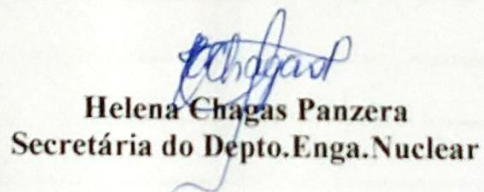 Helena Chagas Panzera
Secretária do Depto.Enga.Nuclear